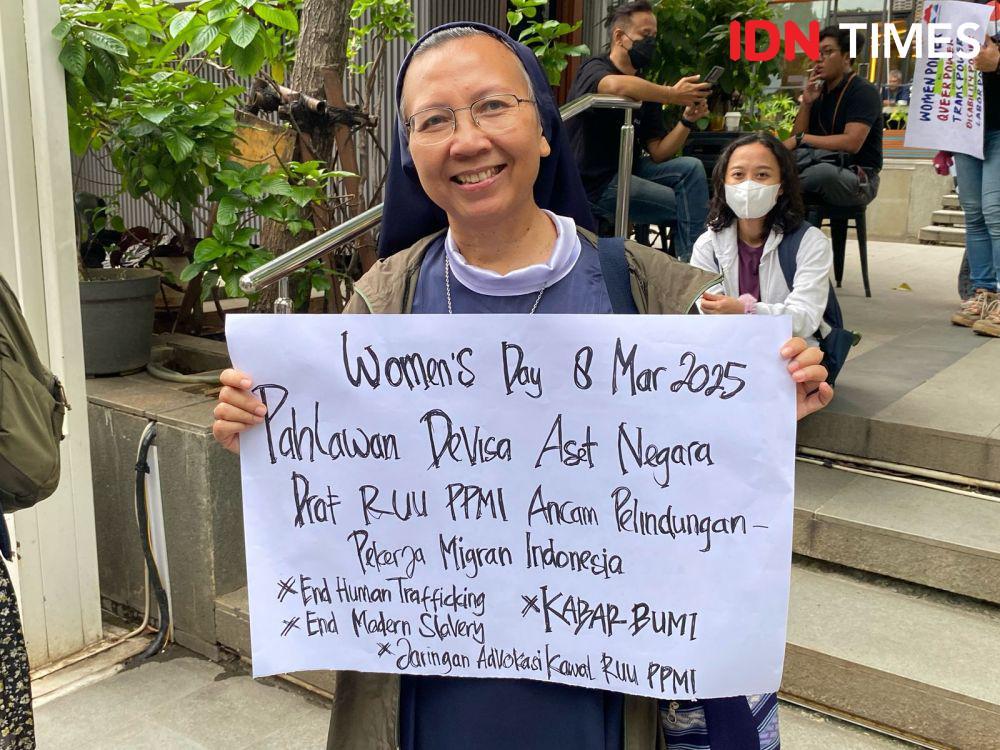 IDN TIMES
WOMEN POWER
QUEER POWER
TRANS POWER
Women's Day 8 Mar 2025
Pahlawan Devisa Aset Negara
Draf RUU PPMI Ancam Pelindungan -
Pekerja Migran Indonesia
* End Human Trafficking
* End Modern Slavery
* KABAR BUMI
* Jaringan Advokasi Kawal RUU PPMI